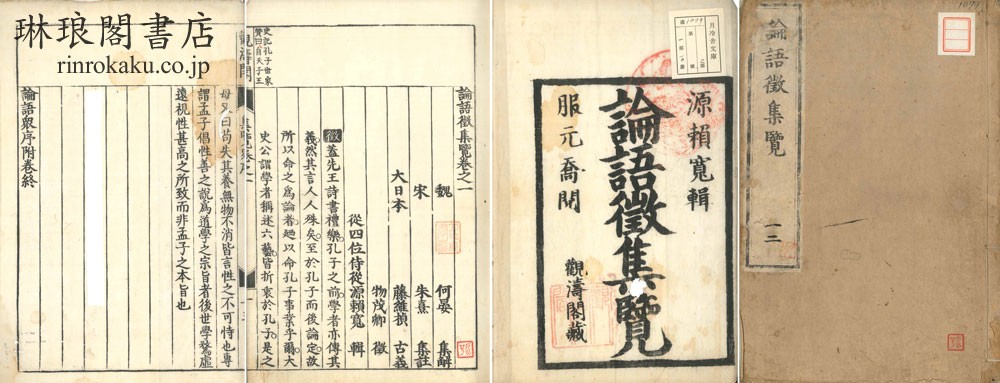 琳琅閣書店
rinrokaku.co.jp
論語徵集覽 一二
源賴寬輯
論語徵集覽
服元喬閱
觀濤閣藏
月冷舍文庫
論語徵集覽卷之一
魏 何晏 集解
宋 朱熹 集註
大日本 藤維楨 古義
物茂卿 徵
從四位侍從源賴寬 輯
徵蓋先王詩書禮樂孔子之前學者亦傳其
義然其言人人殊矣至於孔子而後論定故
所以命之爲論者迺以命孔子事業乎爾大
史公謂學者稱述六藝皆折衷於孔子是之
史記孔子世家
贊曰自天子王
觀濤閣
集覽卷之一
母又曰苟失其養無物不消皆言性之不可恃也專
謂孟子倡性善之說爲道學之宗旨者後世學騖虛
遠視性甚高之所致而非孟子之本旨也
論語眾序附卷終